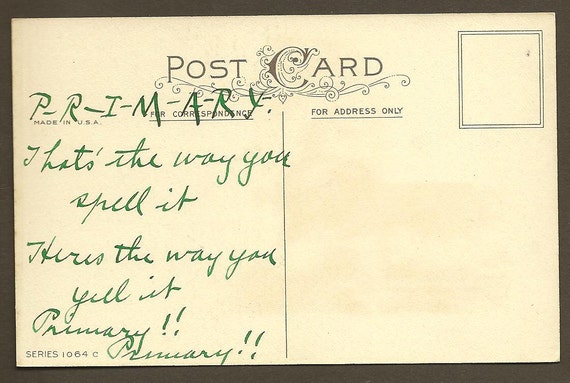 POST CARD
P-R-I-M-A-R-Y.
MADE IN U.S.A.
FOR CORRESPONDENCE
FOR ADDRESS ONLY
Thats' the way you
spell it
Heres the way you
yell it
Primary!!
Primary!!
SERIES 1064 C